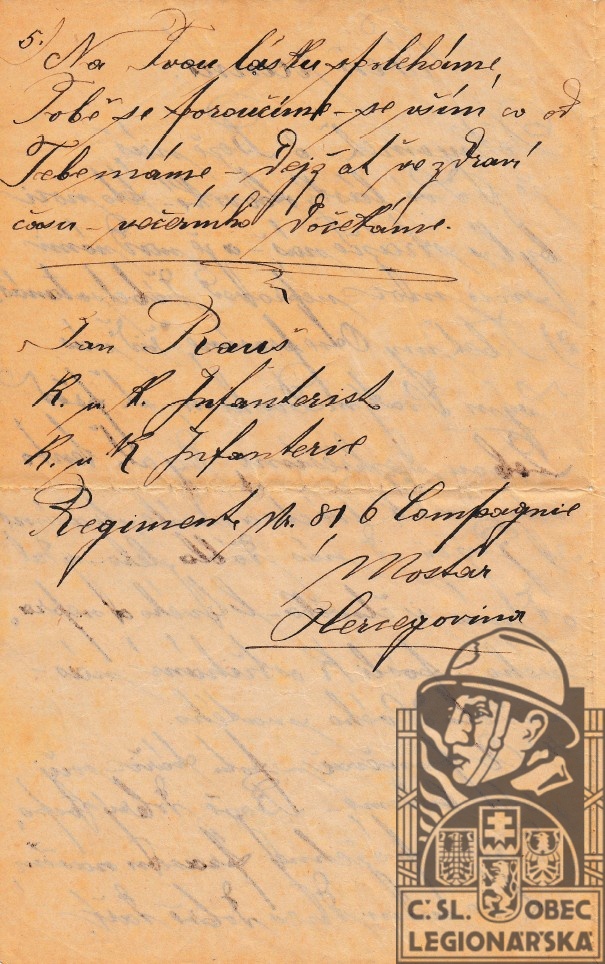 5.) Na Tvou lásku spoleháme,
Tobě se poroučíme – se vším co od
Tebe máme – dejž ať ve zdraví
času – večerního dočekáme.
Jan Rauš
K. u K. Infanterist
K. u K Infanterie
Regiment Nr. 81, 6 Compagnie
Mostar
Hercegovina
Č. SL. OBEC
LEGIONÁŘSKÁ